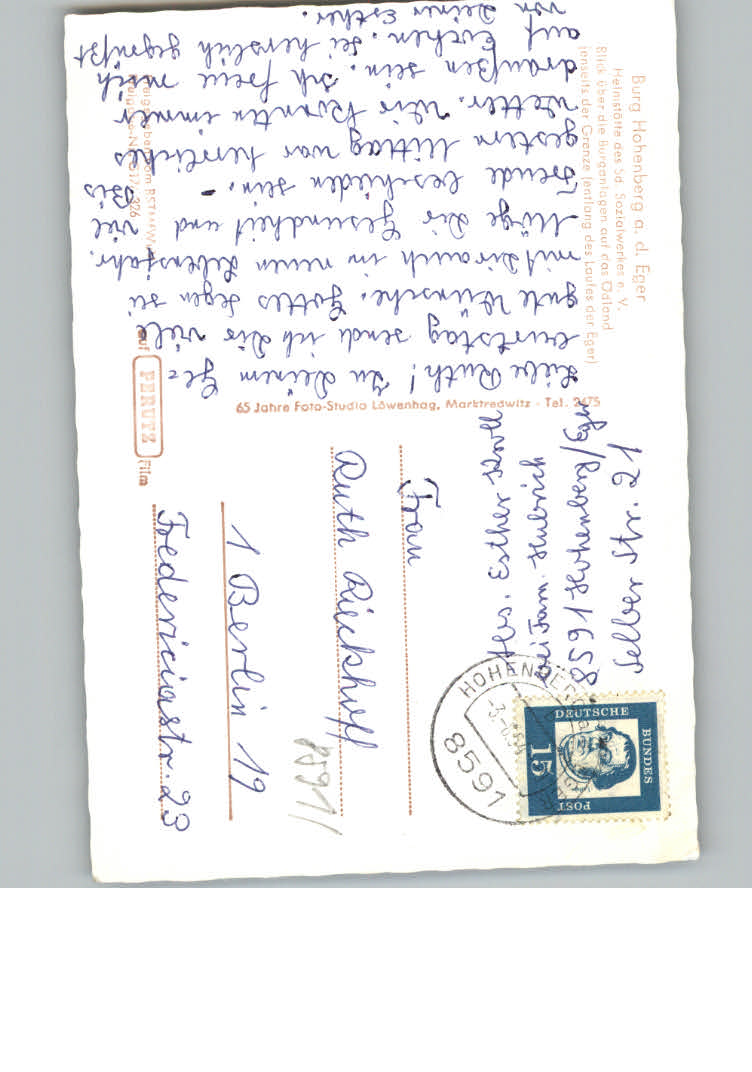 Burg Hohenberg a. d. Eger
Heimstätte des Sd. Sozialwerkes e. V.
Blick über die Burganlagen auf das Ödland
jenseits der Grenze (entlang des Laufes der Eger)
Liebe Ruth! Zu Deinem Ge=
burtstag send ich Dir viele
gute Wünsche. Gottes Segen sei
mit Dir auch im neuen Lebensjahr.
Möge Dir Gesundheit und viel
Freude beschieden sein. - Bis
gestern Mittag war herrliches
Wetter. Wir konnten immer
draußen sein. Ich freue mich
auf Euchen. Sei herzlich gegrüßt
von Deiner Esther.
65 Jahre Foto-Studio Löwenhag, Marktredwitz - Tel. 2475
auf PERUTZ Film
Abs. Esther
bei Fam. Hubrich
8591 Hohenberg/Eger
Selber Str. 21
HOHENBERG
8591
DEUTSCHE
BUNDES
POST
15
Frau
Ruth Rieckhoff
8591/
1 Berlin 19
Fredericiastr. 23